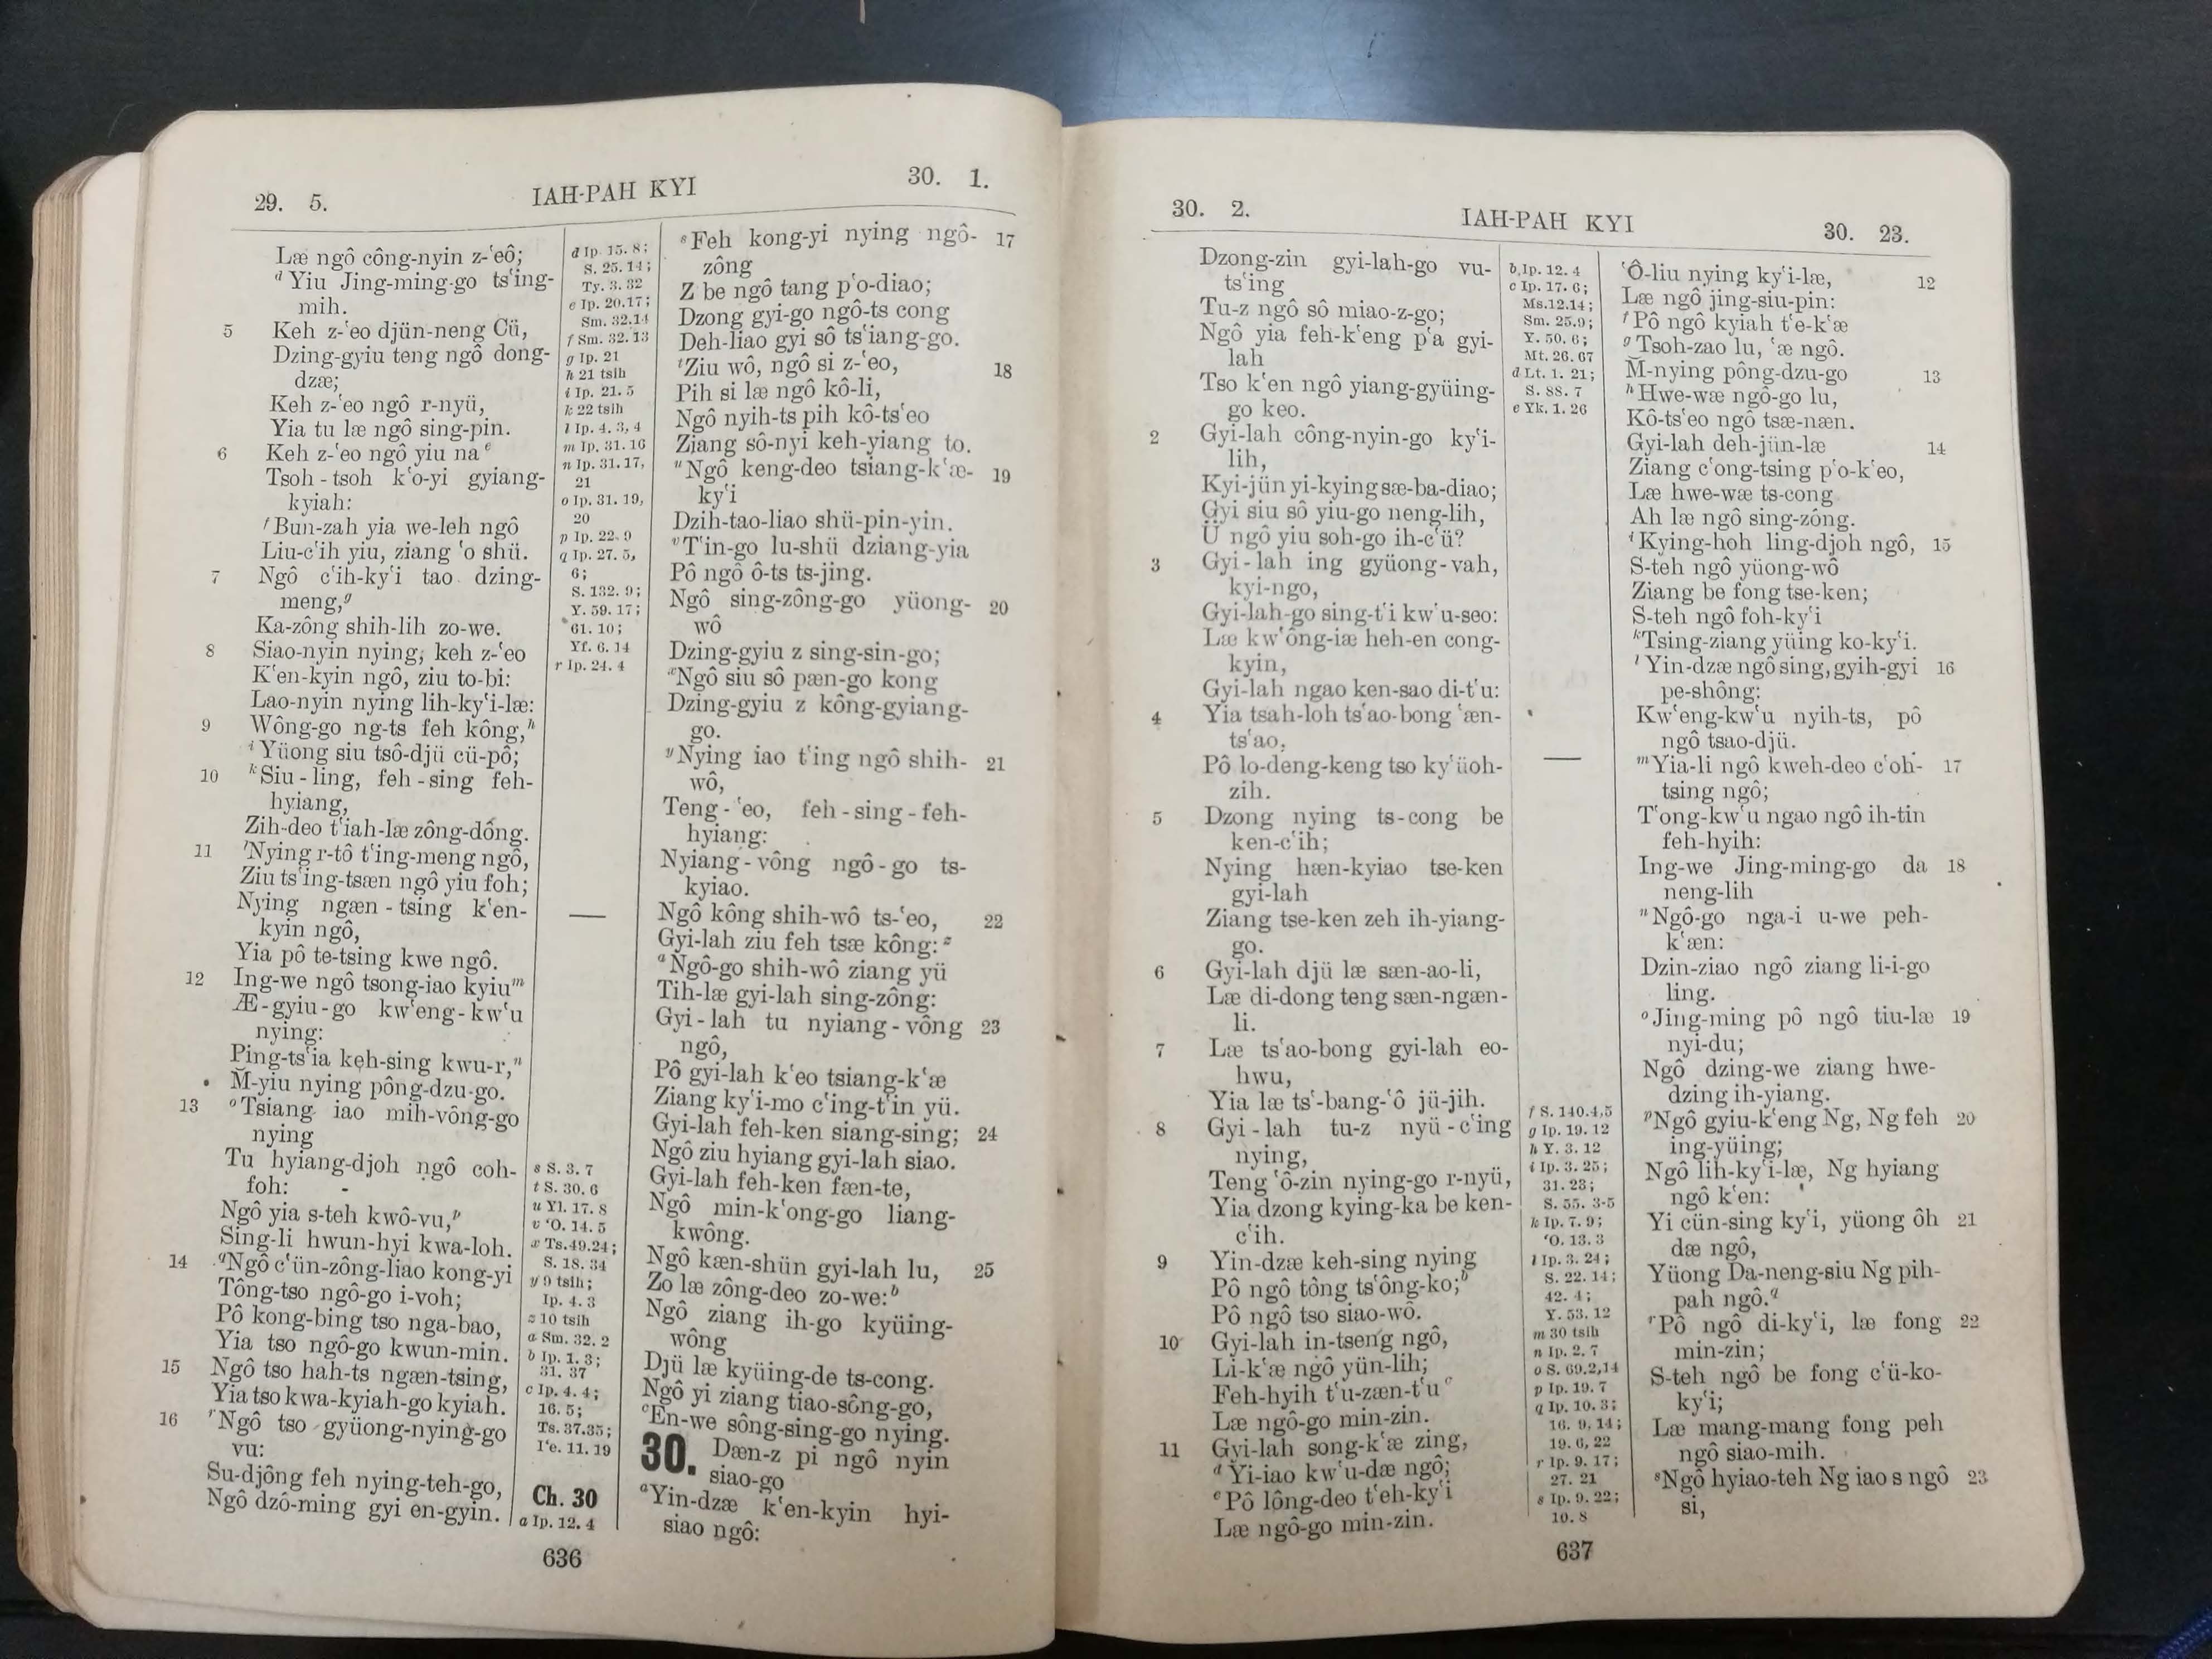 29. 5.
IAH-PAH KYI
30. 1.
Læ ngô công-nyin z-‘eô;
d Yiu Jing-ming-go ts‘ing-
mih.
5 Keh z-‘eo djün-neng Cü,
Dzing-gyiu teng ngô dong-
dzæ;
Keh z-‘eo ngô r-nyü,
Yia tu læ ngô sing-pin.
6 Keh z-‘eo ngô yiu na e
Tsoh-tsoh k‘o-yi gyiang-
kyiah:
f Bun-zah yia we-leh ngô
Liu-c‘ih yiu, ziang ‘o shü.
7 Ngô c‘ih-ky‘i tao dzing-
meng, g
Ka-zông shih-lih zo-we.
8 Siao-nyin nying, keh z-‘eo
K‘en-kyin ngô, ziu to-bi:
Lao-nyin nying lih-ky‘i-læ:
9 Wông-go ng-ts feh kông, h
i Yüong siu tsô-djü cü-pô;
10 k Siu-ling, feh-sing feh-
hyiang,
Zih-deo t‘iah-læ zông-dông.
11 l Nying r-tô t‘ing-meng ngô,
Ziu ts‘ing-tsæn ngô yiu foh;
Nying ngæn-tsing k‘en-
kyin ngô,
Yia pô te-tsing kwe ngô.
12 Ing-we ngô tsong-iao kyiu m
Æ-gyiu-go kw‘eng-kw‘u
nying:
Ping-ts‘ia keh-sing kwu-r, n
M̆-yiu nying pông-dzu-go.
13 o Tsiang iao mih-vông-go
nying
Tu hyiang-djoh ngô coh-
foh:
Ngô yia s-teh kwô-vu, p
Sing-li hwun-hyi kwa-loh.
14 q Ngô c‘ün-zông-liao kong-yi
Tông-tso ngô-go i-voh;
Pô kong-bing tso nga-bao,
Yia tso ngô-go kwun-min.
15 Ngô tso hah-ts ngæn-tsing,
Yia tso kwa-kyiah-go kyiah.
16 r Ngô tso gyüong-nying-go
vu:
Su-djông feh nying-teh-go,
Ngô dzô-ming gyi en-gyin.
d Ip. 15. 8;
S. 25. 14;
Ty. 3. 32
e Ip. 20. 17;
Sm. 32. 14
f Sm. 32. 13
g Ip. 21
h 21 tsih
i Ip. 21. 5
k 22 tsih
l Ip. 4. 3, 4
m Ip. 31. 16
n Ip. 31. 17,
21
o Ip. 31. 19,
20
p Ip. 22. 9
q Ip. 27. 5,
6;
S. 132. 9;
Y. 59. 17;
61. 10;
Yf. 6. 14
r Ip. 24. 4
s S. 3. 7
t S. 30. 6
u Yl. 17. 8
v ‘O. 14. 5
x Ts. 49. 24;
S. 18. 34
y 9 tsih;
Ip. 4. 3
z 10 tsih
a Sm. 32. 2
b Ip. 1. 3;
31. 37
c Ip. 4. 4;
16. 5;
Ts. 37. 35;
I‘e. 11. 19
Ch. 30
a Ip. 12. 4
s Feh kong-yi nying ngô- 17
zông
Z be ngô tang p‘o-diao;
Dzong gyi-go ngô-ts cong
Deh-liao gyi sô ts‘iang-go.
t Ziu wô, ngô si z-‘eo, 18
Pih si læ ngô kô-li,
Ngô nyih-ts pih kô-ts‘eo
Ziang sô-nyi keh-yiang to.
u Ngô keng-deo tsiang-k‘æ- 19
ky‘i
Dzih-tao-liao shü-pin-yin.
v T‘in-go lu-shü dziang-yia
Pô ngô ô-ts ts-jing.
Ngô sing-zông-go yüong- 20
wô
Dzing-gyiu z sing-sin-go;
x Ngô siu sô pæn-go kong
Dzing-gyiu z kông-gyiang-
go.
y Nying iao t‘ing ngô shih- 21
wô,
Teng-‘eo, feh-sing-feh-
hyiang:
Nyiang-vông ngô-go ts-
kyiao.
Ngô kông shih-wô ts-‘eo, 22
Gyi-lah ziu feh tsæ kông: z
a Ngô-go shih-wô ziang yü
Tih-læ gyi-lah sing-zông:
Gyi-lah tu nyiang-vông 23
ngô,
Pô gyi-lah k‘eo tsiang-k‘æ
Ziang ky‘i-mo c‘ing-t‘in yü.
Gyi-lah feh-ken siang-sing; 24
Ngô ziu hyiang gyi-lah siao.
Gyi-lah feh-ken fæn-te,
Ngô min-k‘ong-go liang-
kwông.
Ngô kæn-shün gyi-lah lu, 25
Zo læ zông-deo zo-we: b
Ngô ziang ih-go kyüing-
wông
Djü læ kyüing-de ts-cong.
Ngô yi ziang tiao-sông-go,
c En-we sông-sing-go nying.
30. Dæn-z pi ngô nyin
siao-go
a Yin-dzæ k‘en-kyin hyi-
siao ngô:
636
30. 2.
IAH-PAH KYI
30. 23.
Dzong-zin gyi-lah-go vu-
ts‘ing
Tu-z ngô sô miao-z-go;
Ngô yia feh-k‘eng p‘a gyi-
lah
Tso k‘en ngô yiang-gyüing-
go keo.
2 Gyi-lah công-nyin-go ky‘i-
lih,
Kyi-jün yi-kying sæ-ba-diao;
Gyi siu sô yiu-go neng-lih,
Ü ngô yiu soh-go ih-c‘ü?
3 Gyi-lah ing gyüong-vah,
kyi-ngo,
Gyi-lah-go sing-t‘i kw‘u-seo:
Læ kw‘ông-iæ heh-en cong-
kyin,
Gyi-lah ngao ken-sao di-t‘u:
4 Yia tsah-loh ts‘ao-bong ‘æn-
ts‘ao,
Pô lo-deng-keng tso ky‘üoh-
zih.
5 Dzong nying ts-cong be
ken-c‘ih;
Nying hæn-kyiao tse-ken
gyi-lah
Ziang tse-ken zeh ih-yiang-
go.
6 Gyi-lah djü læ sæn-ao-li,
Læ di-dong teng sæn-ngæn-
li.
7 Læ ts‘ao-bong gyi-lah eo-
hwu,
Yia læ ts‘-bang-‘ô jü-jih.
8 Gyi-lah tu-z nyü-c‘ing
nying,
Teng ‘ô-zin nying-go r-nyü,
Yia dzong kying-ka be ken-
c‘ih.
9 Yin-dzæ keh-sing nying
Pô ngô tông ts‘ông-ko; b
Pô ngô tso siao-wô.
10 Gyi-lah in-tseng ngô,
Li-k‘æ ngô yün-lih;
Feh-hyih t‘u-zæn-t‘u c
Læ ngô-go min-zin.
11 Gyi-lah song-k‘æ zing,
d Yi-iao kw‘u-dæ ngô;
e Pô lông-deo t‘eh-ky‘i
Læ ngô-go min-zin.
b Ip. 12. 4
c Ip. 17. 6;
Ms. 12. 14;
Sm. 25. 9;
Y. 50. 6;
Mt. 26. 67
d Lt. 1. 21;
S. 88. 7
e Yk. 1. 26
f S. 140. 4, 5
g Ip. 19. 12
h Y. 3. 12
i Ip. 3. 25;
31. 23;
S. 55. 3-5
k Ip. 7. 9;
‘O. 13. 3
l Ip. 3. 24;
S. 22. 14;
42. 4;
Y. 53. 12
m 30 tsih
n Ip. 2. 7
o S. 69. 2, 14
p Ip. 19. 7
q Ip. 10. 3;
16. 9, 14;
19. 6, 22
r Ip. 9. 17;
27. 21
s Ip. 9. 22;
10. 8
‘Ô-liu nying ky‘i-læ, 12
Læ ngô jing-siu-pin:
f Pô ngô kyiah t‘e-k‘æ
g Tsoh-zao lu, ‘æ ngô.
M̆-nying pông-dzu-go 13
h Hwe-wæ ngô-go lu,
Kô-ts‘eo ngô tsæ-næn.
Gyi-lah deh-jün-læ 14
Ziang c‘ong-tsing p‘o-k‘eo,
Læ hwe-wæ ts-cong
Ah læ ngô sing-zông.
i Kying-hoh ling-djoh ngô, 15
S-teh ngô yüong-wô
Ziang be fong tse-ken;
S-teh ngô foh-ky‘i
k Tsing-ziang yüing ko-ky‘i.
l Yin-dzæ ngô sing, gyih-gyi 16
pe-shông:
Kw‘eng-kw‘u nyih-ts, pô
ngô tsao-djü.
m Yia-li ngô kweh-deo c‘oh- 17
tsing ngô;
T‘ong-kw‘u ngao ngô ih-tin
feh-hyih:
Ing-we Jing-ming-go da 18
neng-lih
n Ngô-go nga-i u-we peh-
k‘æn:
Dzin-ziao ngô ziang li-i-go
ling.
o Jing-ming pô ngô tiu-læ 19
nyi-du;
Ngô dzing-we ziang hwe-
dzing ih-yiang.
p Ngô gyiu-k‘eng Ng, Ng feh 20
ing-yüing;
Ngô lih-ky‘i-læ, Ng hyiang
ngô k‘en:
Yi cün-sing ky‘i, yüong ôh 21
dæ ngô,
Yüong Da-neng-siu Ng pih-
pah ngô. q
r Pô ngô di-ky‘i, læ fong 22
min-zin;
S-teh ngô be fong c‘ü-ko-
ky‘i;
Læ mang-mang fong peh
ngô siao-mih.
s Ngô hyiao-teh Ng iao s ngô 23
si,
637